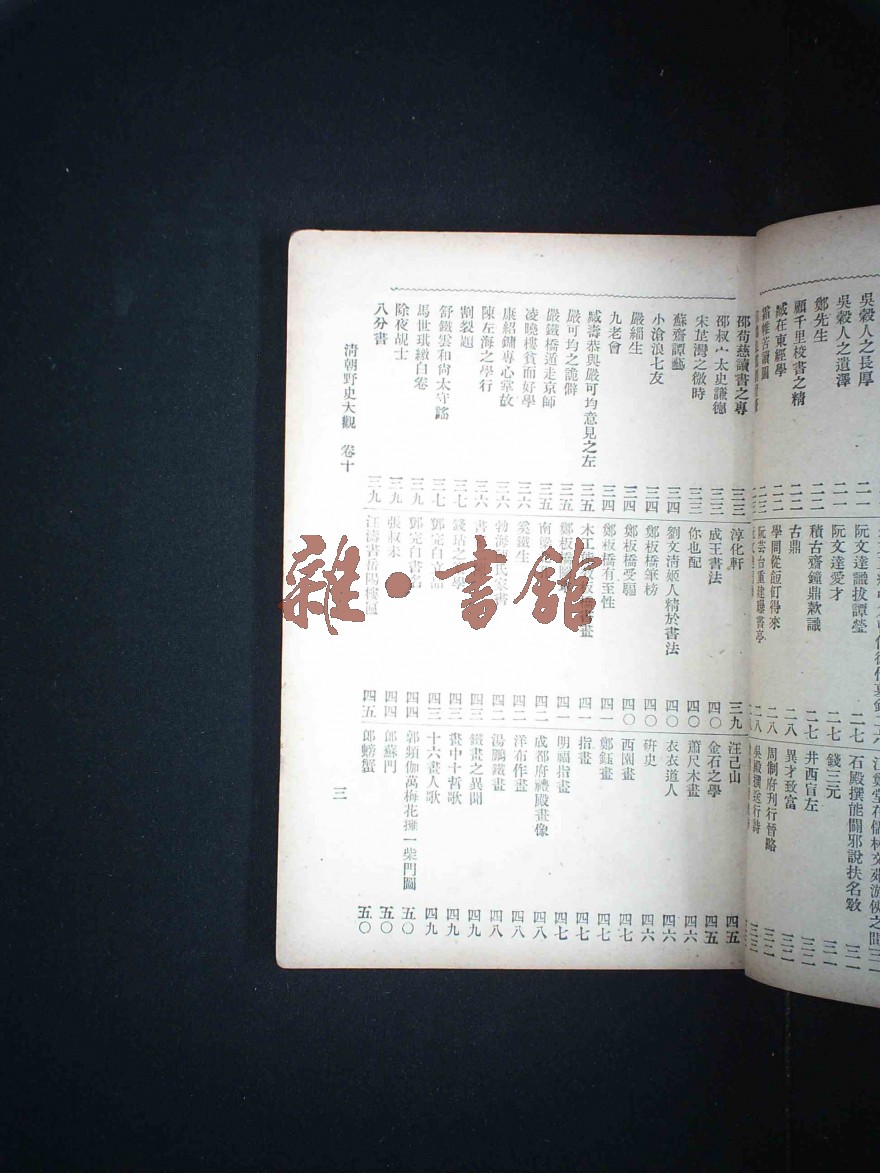 吳穀人之長厚 二一
吳穀人之遺澤 二一
鄭先生 二二
顧千里校書之精 二二
臧在東經學 二二
帷苦讀圖 二三
阮文達識拔譚瑩 二七
阮文達愛才 二七
積古齋鐘鼎款識 二七
古鼎 二八
學問從飣餖得來 二八
阮芸台重建曝書亭 二八
石殿撰能闢邪說扶名教 三一
錢三元 三一
井西盲左 三二
異才致富 三二
周制府刊行晉略 三二
吳殿撰送行詩 三三
邵荀慈讀書之專 三三
邵叔宀太史謙德 三三
宋芷灣之微時 三三
蘇齋譚藝 三四
小滄浪七友 三四
嚴緇生 三四
九老會 三四
臧壽恭與嚴可均意見之左 三五
嚴可均之詭僻 三五
嚴鐵橋道走京師 三五
凌曉樓貧而好學 三六
康紹鏞專心掌故 三六
陳左海之學行 三六
割裂題 三七
舒鐵雲和尙太守謠 三七
馬世琪繳白卷 三九
除夜覘士 三九
八分書 三九
淳化軒 三九
成王書法 四〇
你也配 四〇
劉文淸姬人精於書法 四〇
鄭板橋筆榜 四〇
鄭板橋受騙 四〇
鄭板橋有至性 四一
書畫 四一
鄭板橋 四一
南 四二
奚鐵生 四二
勃海 四二
書 四三
錢坫之 學 四三
鄧完白 四三
鄧完白書 四四
張叔未 四四
汪濤書岳陽樓匾 四五
汪己山 四五
金石之學 四五
蕭尺木畫 四六
衣衣道人 四六
硏史 四六
西園畫 四七
鄭鈺畫 四七
指畫 四七
明福指畫 四七
成都府禮殿畫像 四八
洋布作畫 四八
湯鵬鐵畫 四八
鐵畫之異聞 四九
畫中十哲歌 四九
十六畫人歌 四九
郭頻伽萬梅花擁一柴門圖 五〇
郎蘇門 五〇
郎螃蟹 五〇
淸朝野史大觀 卷十 三
雜·書館